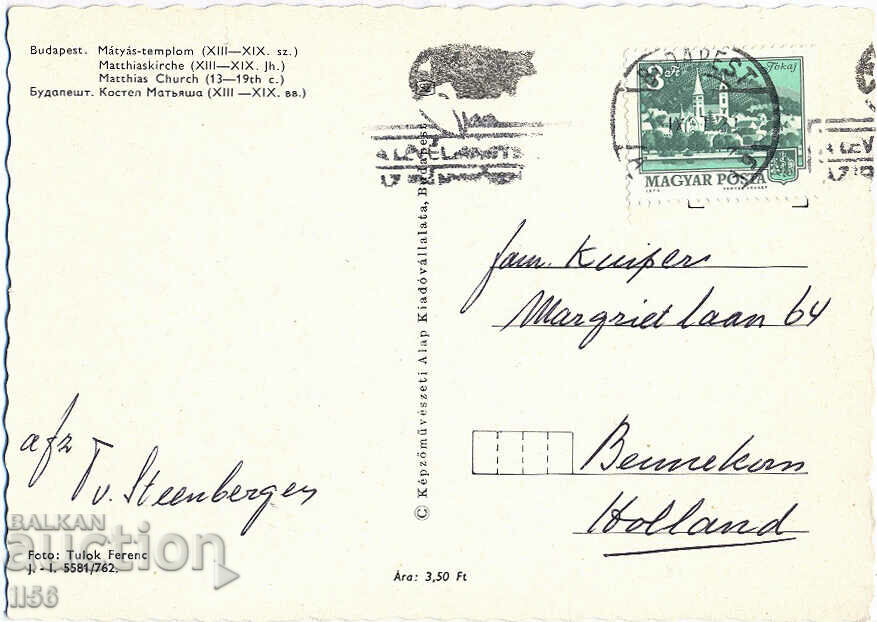 Budapest. Mátyás-templom (XIII—XIX. sz.)
Matthiaskirche (XIII—XIX. Jh.)
Matthias Church (13—19th c.)
Будапешт. Костел Матьяша (XIII—XIX. вв.)
BUDAPEST
3 Ft
Tokaj
MAGYAR POSTA
fam. Kuiper
Margrietlaan 64
Bennekom
Holland
afz
T v. Steenbergen
© Képzőművészeti Alap Kiadóvállalata, Budapest
Foto: Tulok Ferenc
J. - I. 5581/762.
Ára: 3,50 Ft
BALKAN
auction
1156